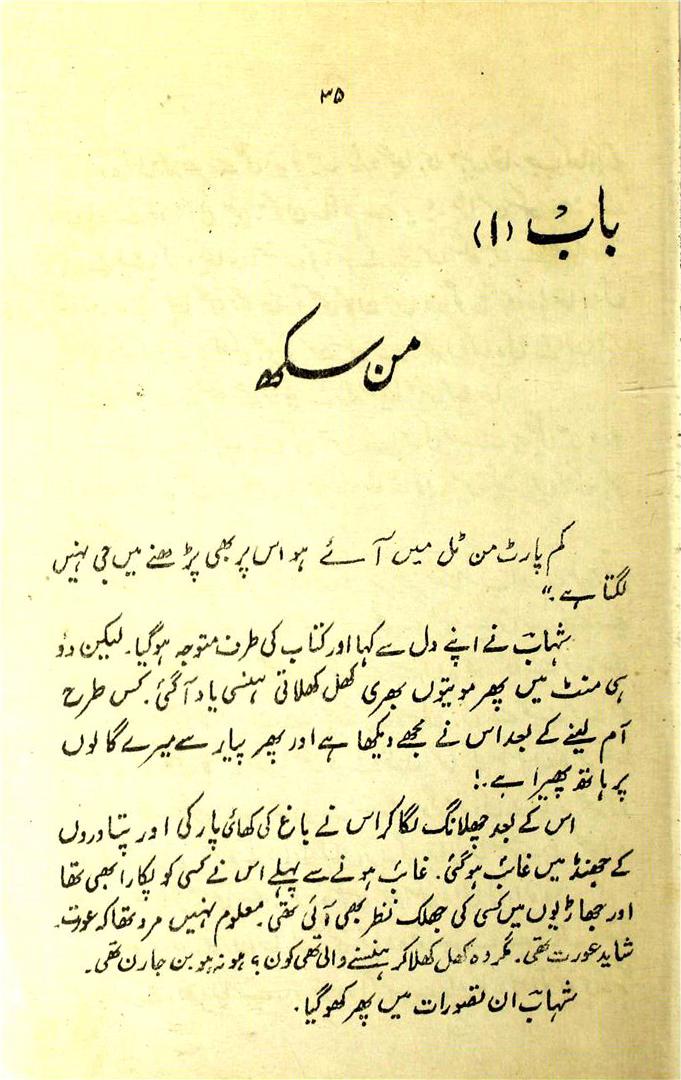 ۳۵
باب (۱)
من سکھ
کم پارٹ من ٹل میں آئے ہو اس پر بھی پڑھنے میں جی نہیں
لگتا ہے."
شہاب نے اپنے دل سے کہا اور کتاب کی طرف متوجہ ہوگیا۔ لیکن دو
ہی منٹ میں پھر موتیوں بھری کھل کھلاتی ہنسی یاد آگئی. کس طرح
آم لینے کے بعد اس نے مجھے دیکھا ہے اور پھر پیار سے میرے گالوں
پر ہاتھ پھیرا ہے.!
اس کے بعد چھلانگ لگا کر اس نے باغ کی کھائی پار کی اور پتاوروں
کے جھنڈ میں غائب ہوگئی. غائب ہونے سے پہلے اس نے کسی کو پکارا بھی تھا
اور جھاڑیوں میں کسی کی جھلک نظر بھی آئی تھی. معلوم نہیں مرد تھا کہ عورت۔
شاید عورت تھی۔ مگر وہ کھل کھلا کر ہنسنے والی تھی کون؟ ہو نہ ہو بن جارن تھی۔
شہاب ان تصورات میں پھر کھو گیا.